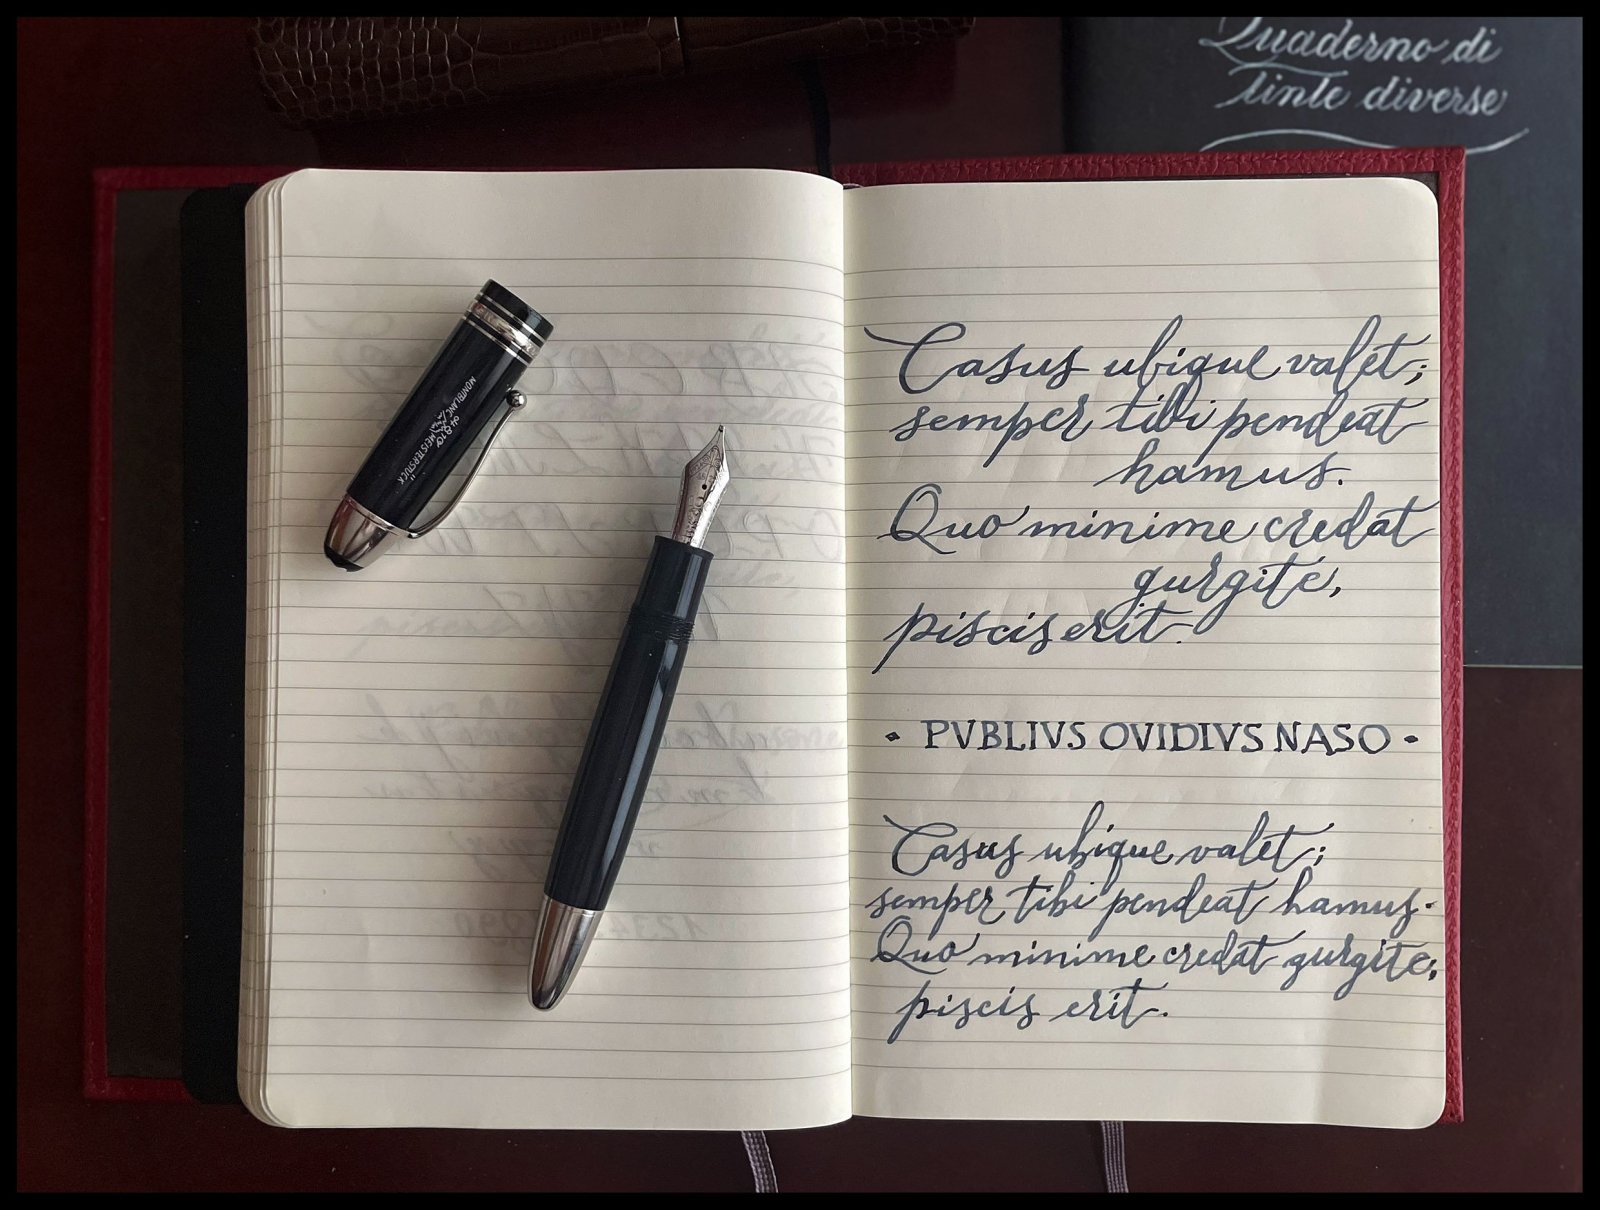 Quaderno di
tinte diverse
MONTBLANC
MEISTERSTÜCK
Casus ubique valet;
semper tibi pendeat
hamus.
Quo minime credat
gurgite,
piscis erit.
• PVBLIVS OVIDIVS NASO •
Casus ubique valet;
semper tibi pendeat hamus.
Quo minime credat gurgite,
piscis erit.